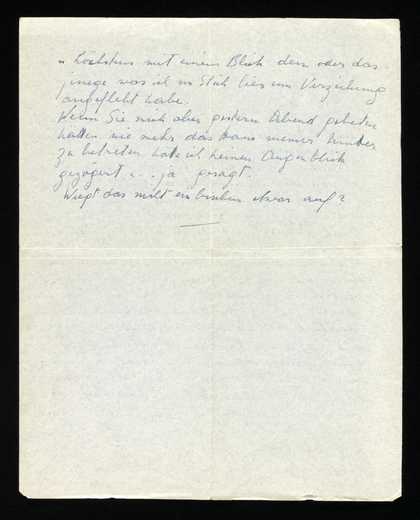 " höchstens mit einem Blick den oder das-
jenige was ich im Stich liess um Verzeihung
angefleht habe.
Wenn Sie mich aber gestern Abend gebeten
hätten nie mehr das Haus meiner Kinder
zu betreten hätte ich keinen Augenblick
gezögert ... ja gesagt.
Wiegt das nicht ein bisschen etwas auf?